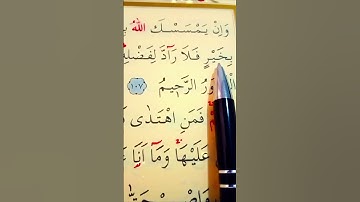 وَاِنْ يَمْسَسْكَ اللّٰهُ
بِخَيْرٍ فَلَا رَآدَّ لِفَضْلِ
وُرُ الرَّحٖيمُ ﴿١٠٧﴾
فَمَنِ اهْتَدٰى
عَلَيْهَا وَمَٓا اَنَا۬